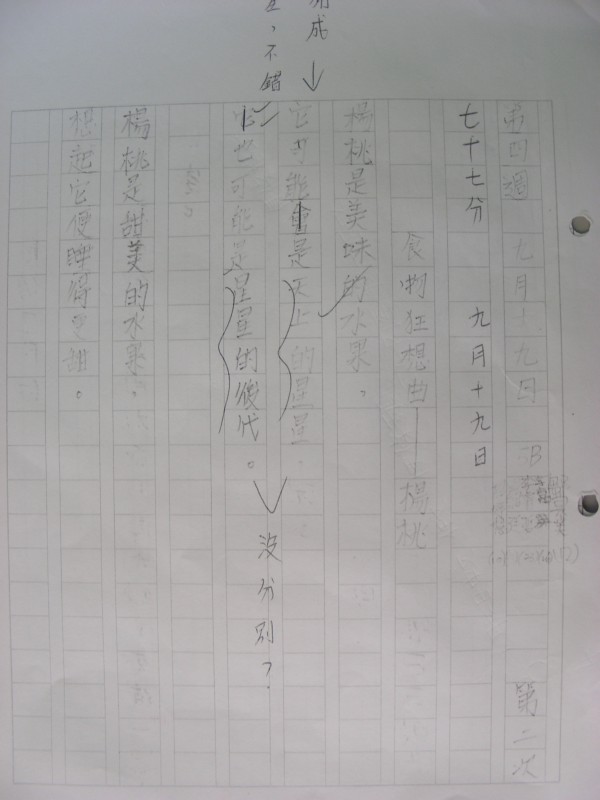 第四週 九月十九日 第二次
七十七分 九月十九日
食物狂想曲——楊桃
楊桃是美味的水果，
它可能會是天上的星星，
它也可能是星星的後代。
沒分別？
楊桃是甜美的水果，
想起它便睡得更甜。
成
，不錯